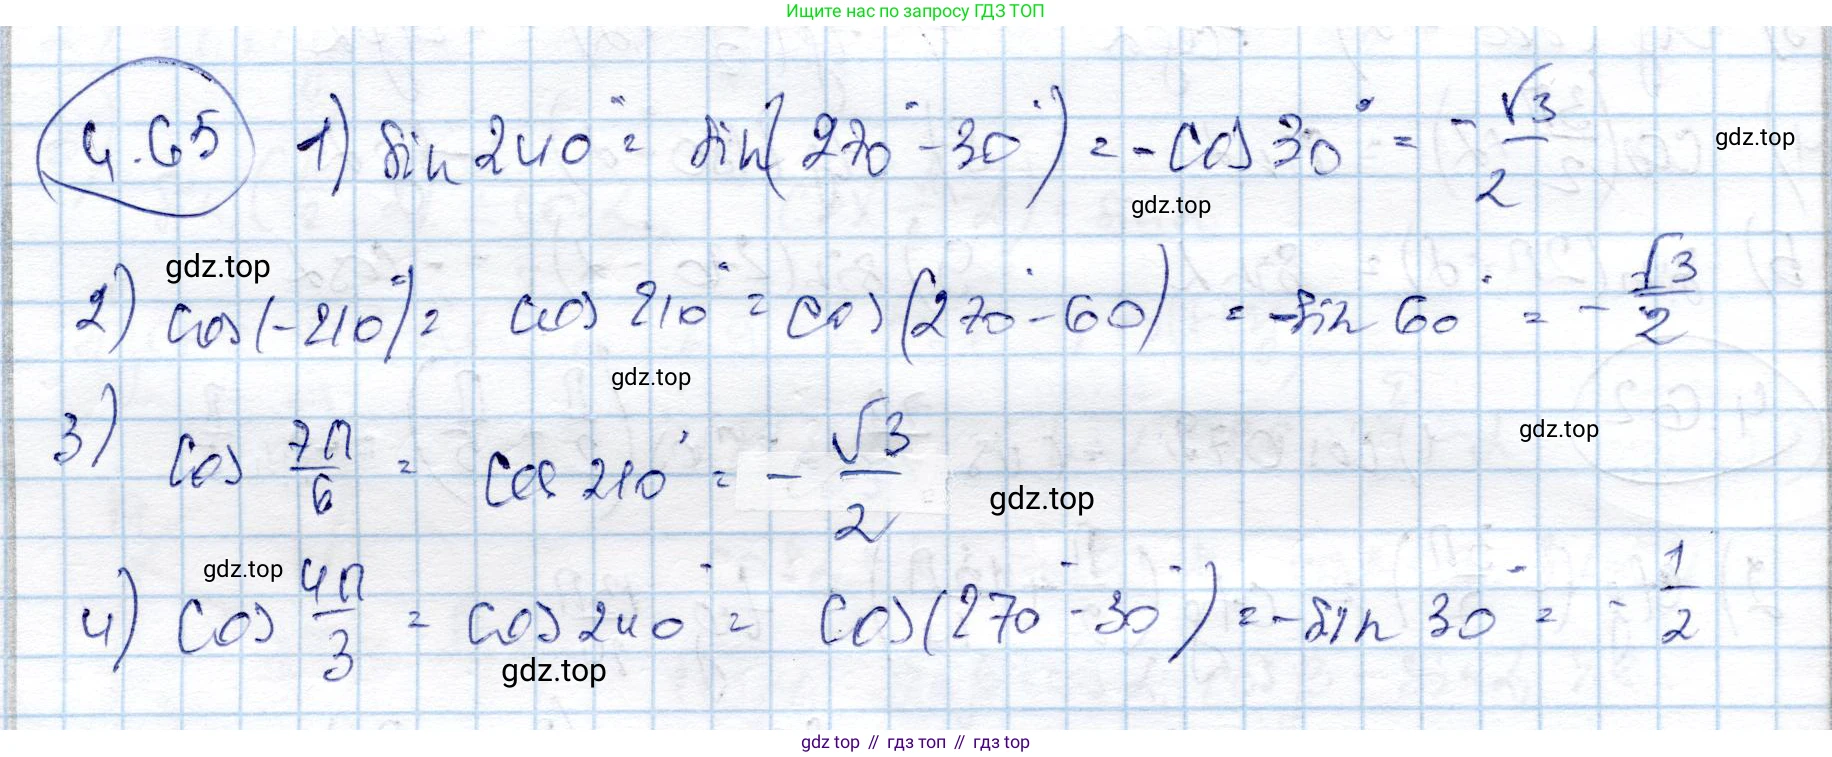 Ищите нас по запросу ГДЗ ТОП
4.65 1) sin 240° = sin(270° - 30°) = - cos 30° = - √3/2
gdz.top
gdz.top
gdz.top
2) cos(-210°) = cos 210° = cos(270° - 60) = - sin 60° = - √3/2
gdz.top
gdz.top
3) cos 7π/6 = cos 210° = - √3/2
gdz.top
gdz.top
4) cos 4π/3 = cos 240° = cos(270° - 30°) = - sin 30° = - 1/2
gdz.top
gdz top // гдз топ // гдз top